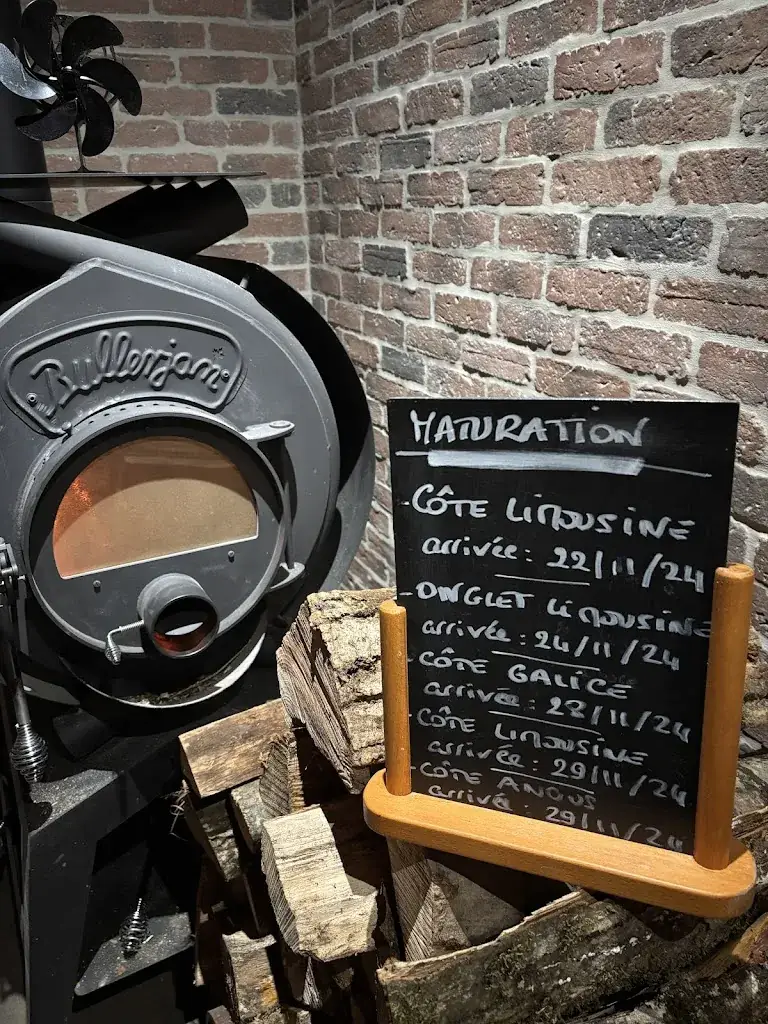 Bullerjan
MATURATION
- CÔTE LIMOUSINE
arrivée : 22/11/24
- ONGLET LIMOUSINE
arrivée : 24/11/24
- CÔTE GALICE
arrivée : 28/11/24
- CÔTE LIMOUSINE
arrivée : 29/11/24
- CÔTE ANGUS
arrivé : 29/11/24